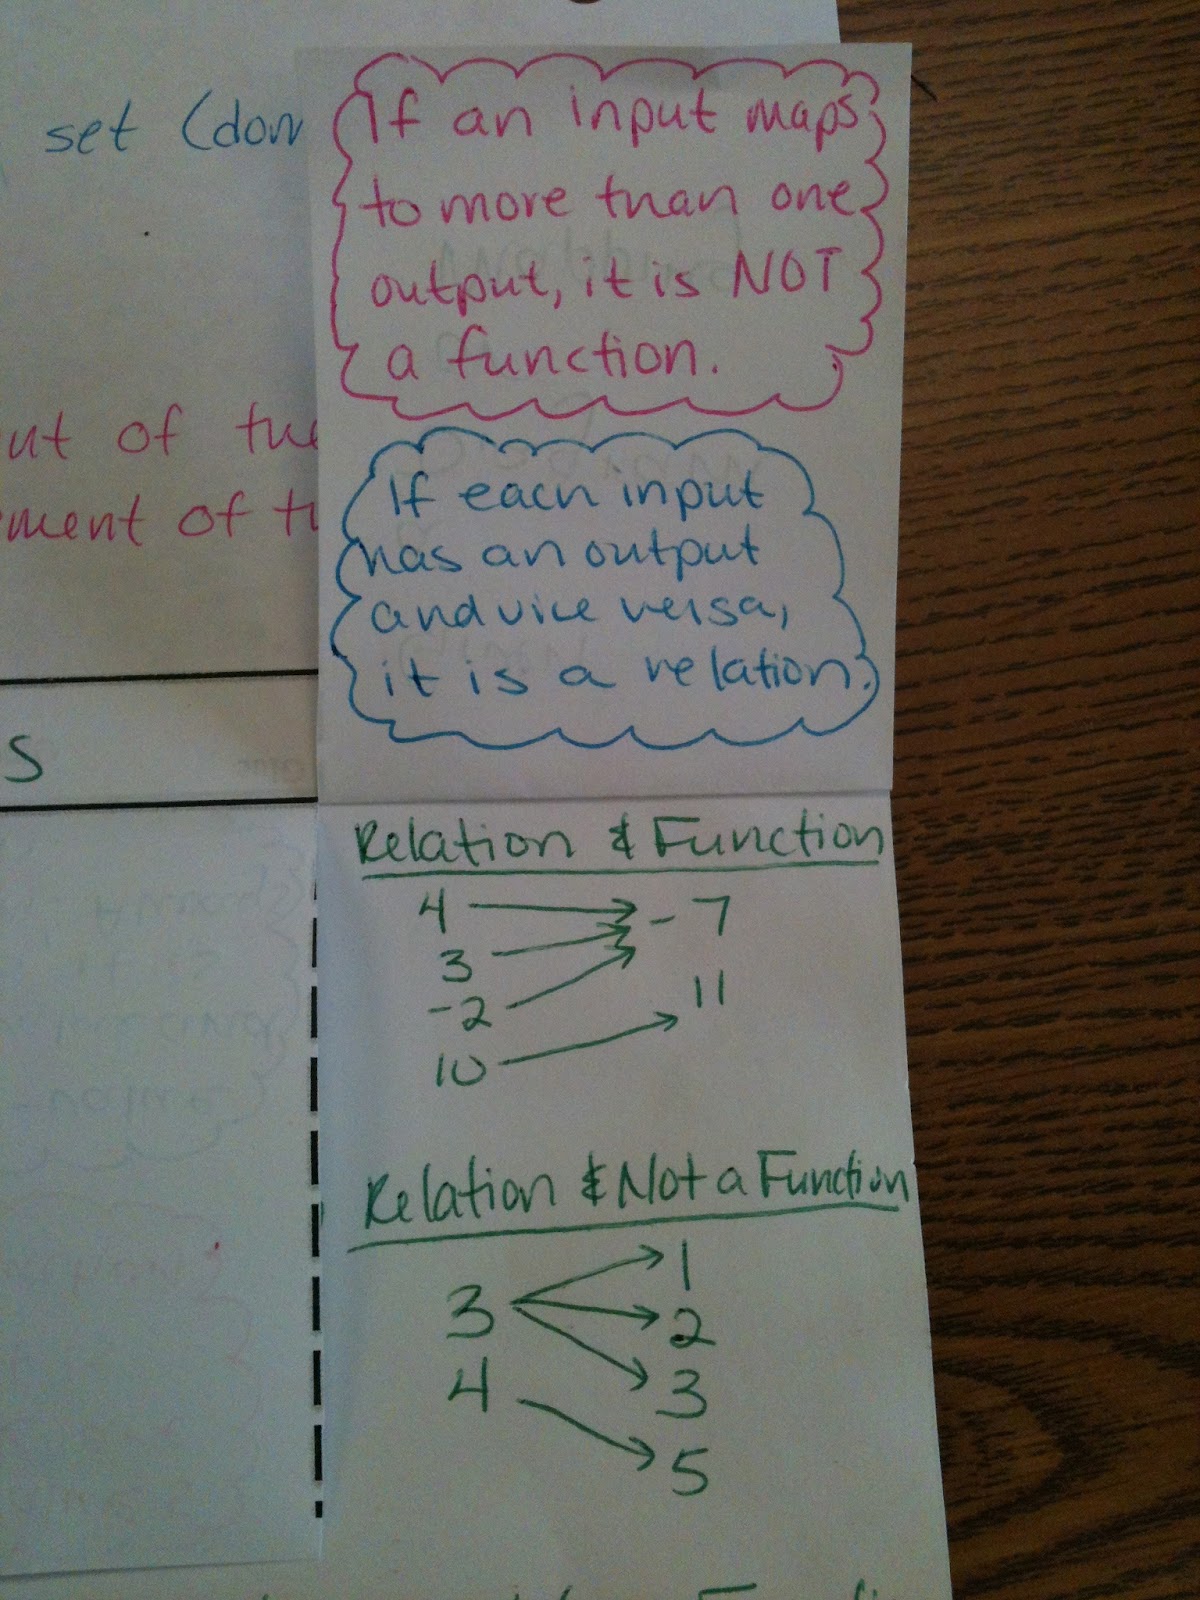 set (dom
If an input maps
to more than one
output, it is NOT
a function.
ut of the
ement of t
If each input
has an output
and vice versa,
it is a relation.
S
Relation & Function
4
3
-2
10
-7
11
Relation & Not a Function
3
4
1
2
3
5